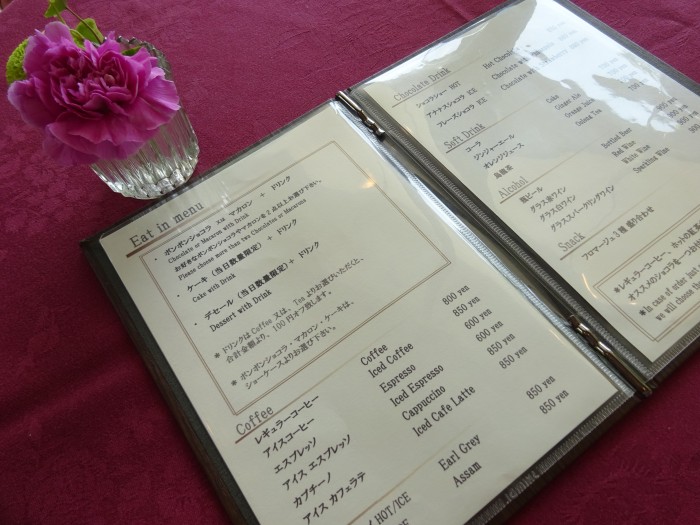 Eat in menu
・ボンボンショコラ 又は マカロン + ドリンク
Chocolate or Macaron with Drink
お好きなボンボンショコラやマカロンを2点以上お選び下さい。
Please choose more than two Chocolates or Macarons
・ケーキ（当日数量限定）+ ドリンク
Cake with Drink
・デセール（当日数量限定）+ ドリンク
Dessert with Drink
※ドリンクはCoffee 又は、Teaよりお選びいただくと、
合計金額より、100円オフ致します。
※ ボンボンショコラ・マカロン・ケーキは、
ショーケースよりお選び下さい。
Coffee
レギュラーコーヒー Coffee 600 yen
アイスコーヒー Iced Coffee 850 yen
エスプレッソ Espresso 600 yen
アイス エスプレッソ Iced Espresso 850 yen
カプチーノ Cappuccino 850 yen
アイス カフェラテ Iced Cafe Latte 850 yen
HOT/ICE Earl Grey
Assam
Chocolate Drink
ショコラショー HOT Hot Chocolate
アナナスショコラ ICE Chocolate with
フレーズショコラ ICE Chocolate with
Soft Drink
コーラ Coke
ジンジャーエール Ginger Ale
オレンジジュース Orange Juice
烏龍茶 Oolong Tea
Alcohol
瓶ビール Bottled Beer
グラス赤ワイン Red Wine
グラス白ワイン White Wine
グラススパークリングワイン Sparkling Wine
Snack
フロマージュ3種 盛り合わせ
※レギュラーコーヒー、ホットの紅茶
オススメのショコラを一つお付
※In case of order hot
we will choose the